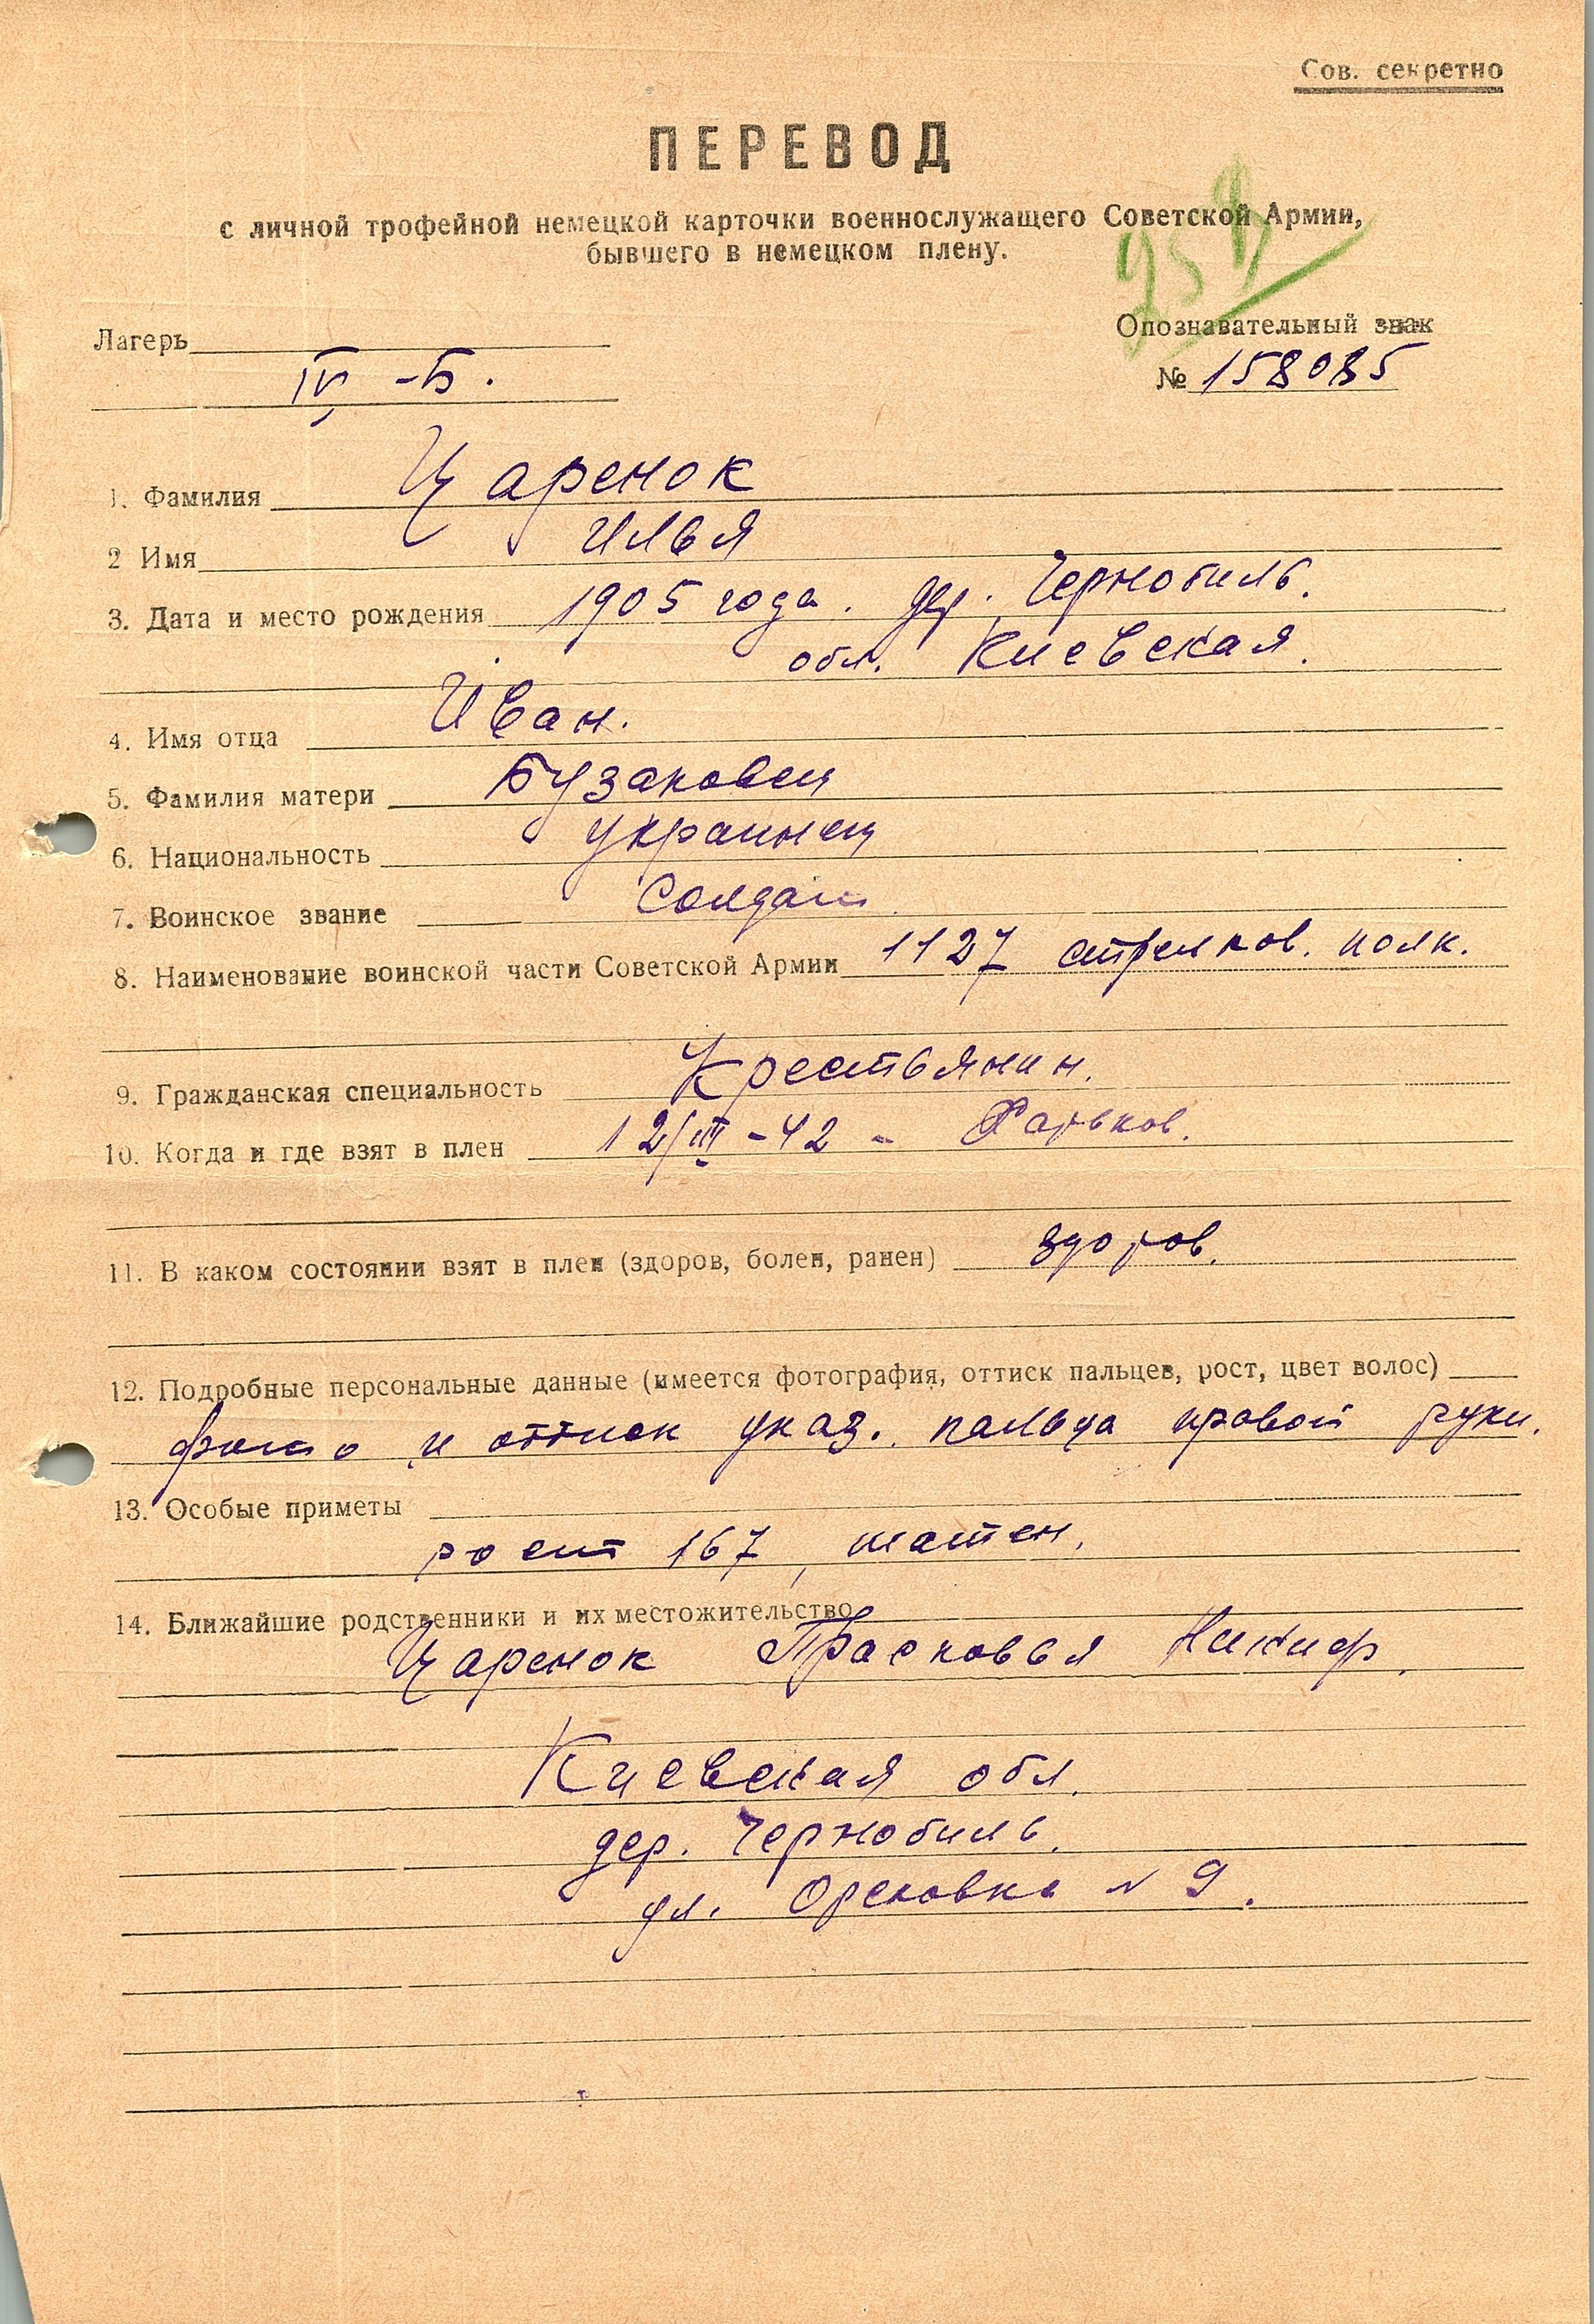 Сов. секретно
ПЕРЕВОД
с личной трофейной немецкой карточки военнослужащего Советской Армии,
бывшего в немецком плену.
Лагерь
Опознавательный знак
IV -Б.
№ 158085
1. Фамилия Царенок
2 Имя Илья
3. Дата и место рождения 1905 года. дер. Чернобиль.
обл. Киевская.
4. Имя отца Иван.
5. Фамилия матери
6. Национальность украинец
7. Воинское звание Солдат
8. Наименование воинской части Советской Армии 1127 стрелков. полк.
9. Гражданская специальность Крестьянин.
10. Когда и где взят в плен 12/III -42 - Харьков.
11. В каком состоянии взят в плен (здоров, болен, ранен) здоров.
12. Подробные персональные данные (имеется фотография, оттиск пальцев, рост, цвет волос)
фото и оттиск указ. пальца правой руки.
13. Особые приметы
рост 167, шатен.
14. Ближайшие родственники и их местожительство
Царенок Прасковья Никиф.
Киевская обл.
дер. Чернобиль.
ул. N 9.